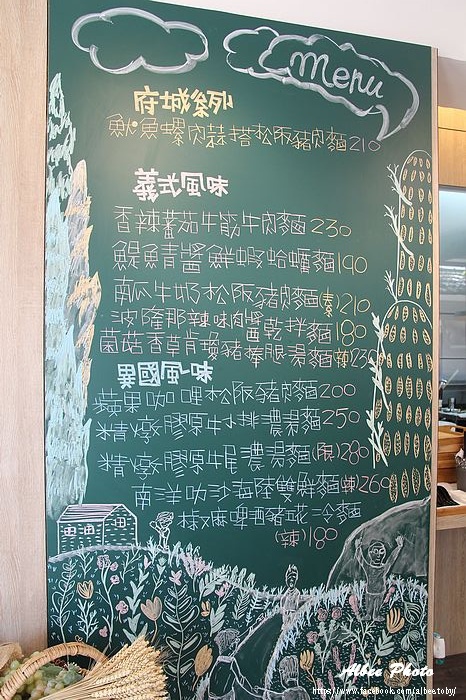 menu
府城系列
魷魚螺肉蒜搭松阪豬肉麵210
義式風味
香辣蕃茄牛筋牛肉麵230
鯷魚青醬鮮蝦蛤蠣麵190
南瓜牛奶松阪豬肉麵(素)210
波隆那辣味肉醬乾拌麵180
菌菇香草肉燥豬棒腿湯麵辣230
異國風味
蘋果咖哩松阪豬肉麵200
精燉膠原牛小排濃湯麵250
精燉膠原牛尾濃湯麵(限)280
南洋叻沙海陸雙鮮麵(辣)260
椒麻啤酒豬 冷麵
(辣)180
Albee Photo
https://www.facebook.com/albeetoby/